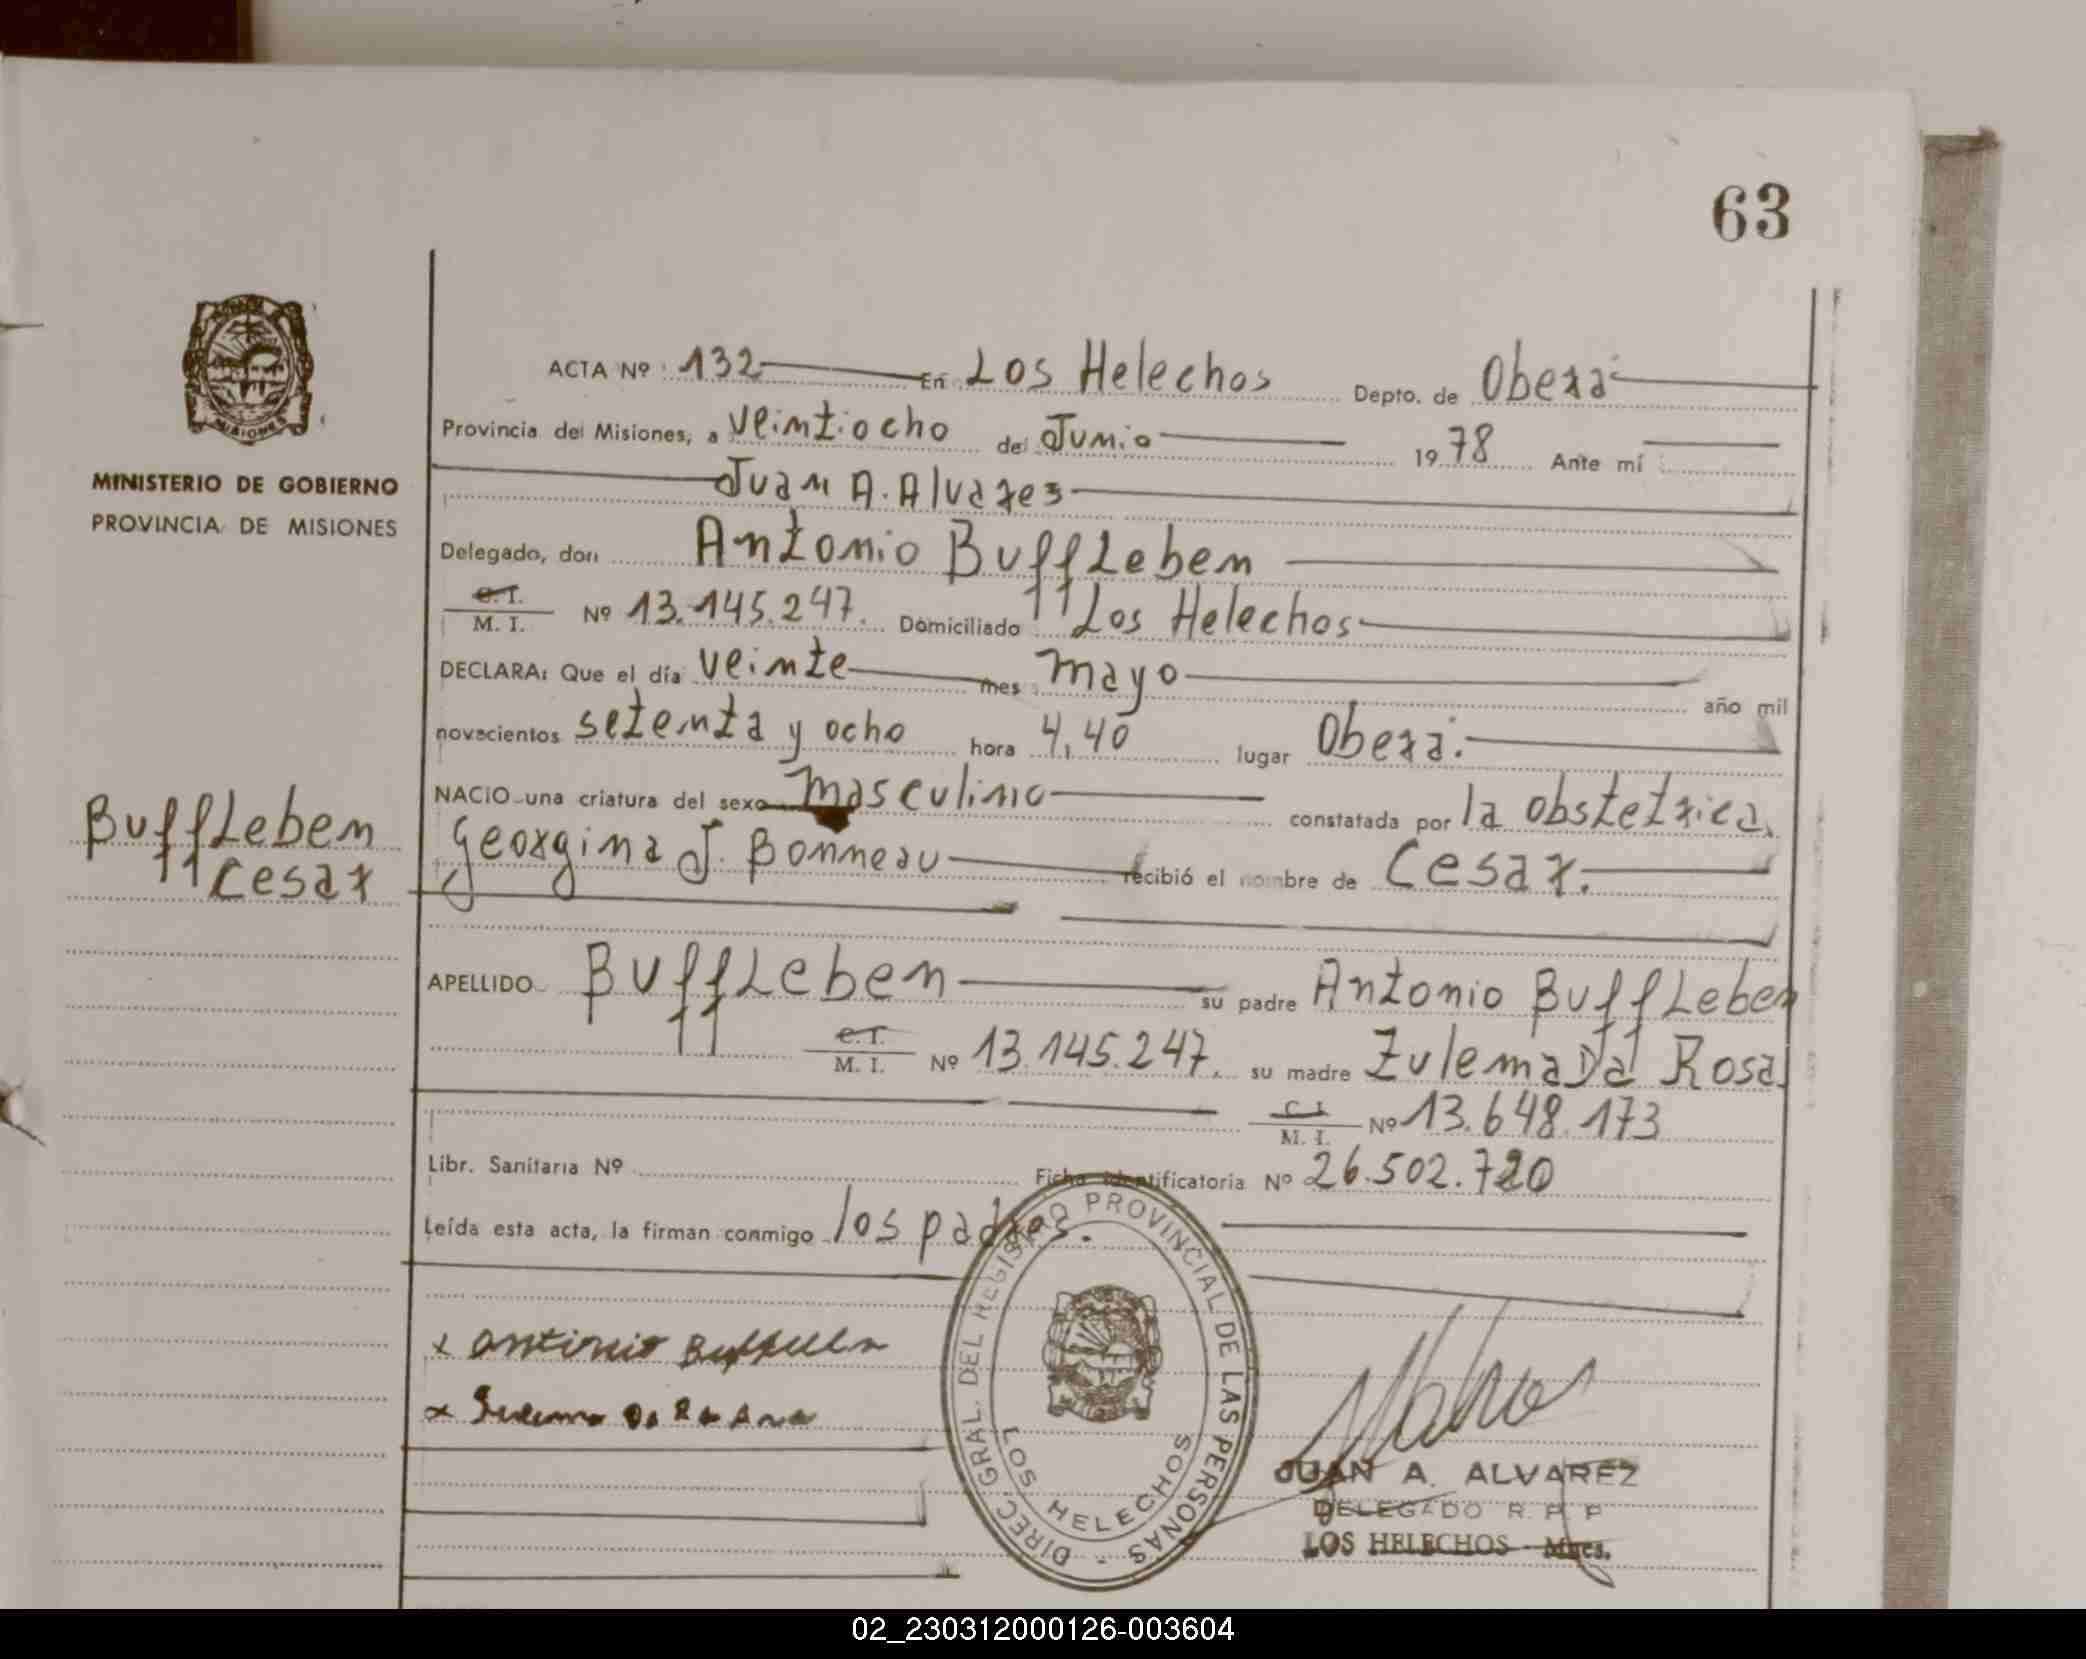 63
ACTA Nº 132 En Los Helechos Depto. de Obera
Provincia de Misiones, a veintiocho de Junio 1978 Ante mí
Juan A. Alvares
Delegado, don Antonio BuffLeben
C. I. / M. I. Nº 13.145.247. Domiciliado Los Helechos
DECLARA: Que el día veinte mes mayo año mil
novecientos setenta y ocho hora 4,40 lugar Obera.
NACIO una criatura del sexo masculino constatada por la obstetrica
Georgina J. Bonneau recibió el nombre de Cesar.
APELLIDO BuffLeben su padre Antonio BuffLeben
C. I. / M. I. Nº 13.145.247. su madre Zulema Da Rosa
C. I. / M. I. Nº 13.648.173
Libr. Sanitaria Nº Ficha identificatoria Nº 26.502.720
Leída esta acta, la firman conmigo los padres.
MISIONES
MINISTERIO DE GOBIERNO
PROVINCIA DE MISIONES
BuffLeben
Cesar
x Antonio
x
DIREC. GRAL. DEL REGISTRO PROVINCIAL DE LAS PERSONAS -
LOS HELECHOS
JUAN A. ALVAREZ
DELEGADO R. P. P
LOS HELECHOS - Mnes.
02_230312000126-003604